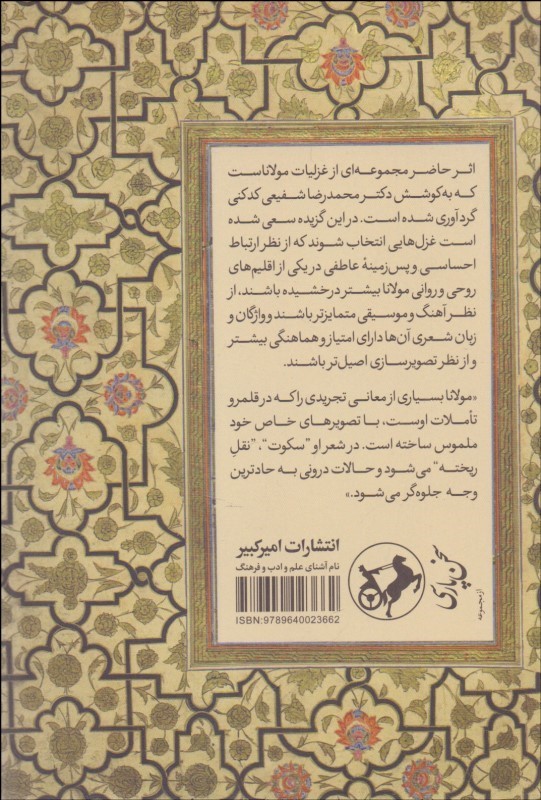 اثر حاضر مجموعه‌ای از غزلیات مولاناست
که به‌کوشش دکتر محمدرضا شفیعی کدکنی
گردآوری شده است. در این گزیده سعی شده
است غزل‌هایی انتخاب شوند که از نظر ارتباط
احساسی و پس‌زمینهٔ عاطفی در یکی از اقلیم‌های
روحی و روانی مولانا بیشتر درخشیده باشند، از
نظر آهنگ و موسیقی متمایزتر باشند و واژگان و
زبان شعری آن‌ها دارای امتیاز و هماهنگی بیشتر
و از نظر تصویرسازی اصیل‌تر باشند.
«مولانا بسیاری از معانی تجریدی را که در قلمرو
تأملات اوست، با تصویرهای خاص خود
ملموس ساخته است. در شعر او "سکوت"، "نقلِ
ریخته" می‌شود و حالات درونی به حادترین
وجه جلوه‌گر می‌شود.»
انتشارات امیرکبیر
نام آشنای علم و ادب و فرهنگ
ISBN: 9789640023662
از مجموعه
سخن پارسی